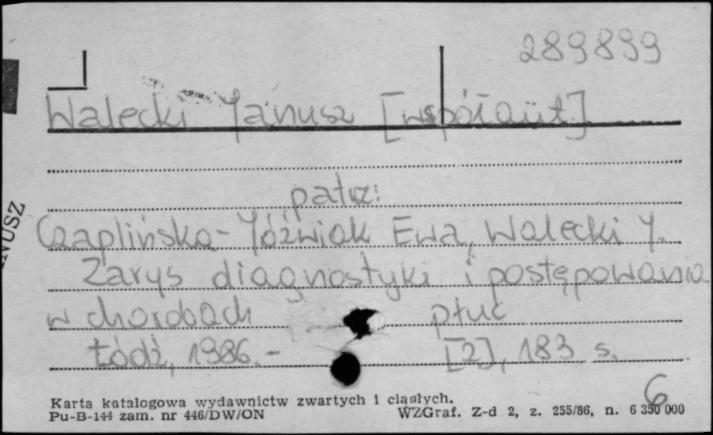 289899
Walecki Janusz [współaut]
patrz:
Czaplińska-Jóźwiak Ewa, Walecki J.
Zarys diagnostyki i postępowania
w chorobach płuc
Łódź, 1986.- [2], 183 s.
6
Karta katalogowa wydawnictw zwartych i ciągłych.
Pu-B-144 zam. nr 446/DW/ON WZGraf. Z-d 2, z. 255/86, n. 6 350 000
NUSZ